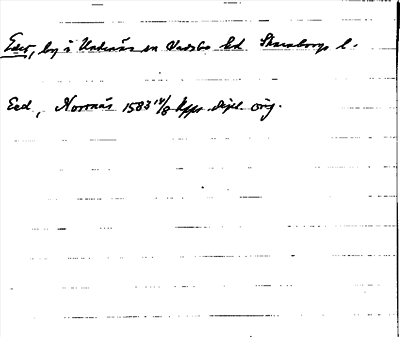 Eder, by i Undenäs sn Vadsbo hd Skaraborgs l.
Eed, Norrnäs 1583 18/8 Upps. dipl. orig.